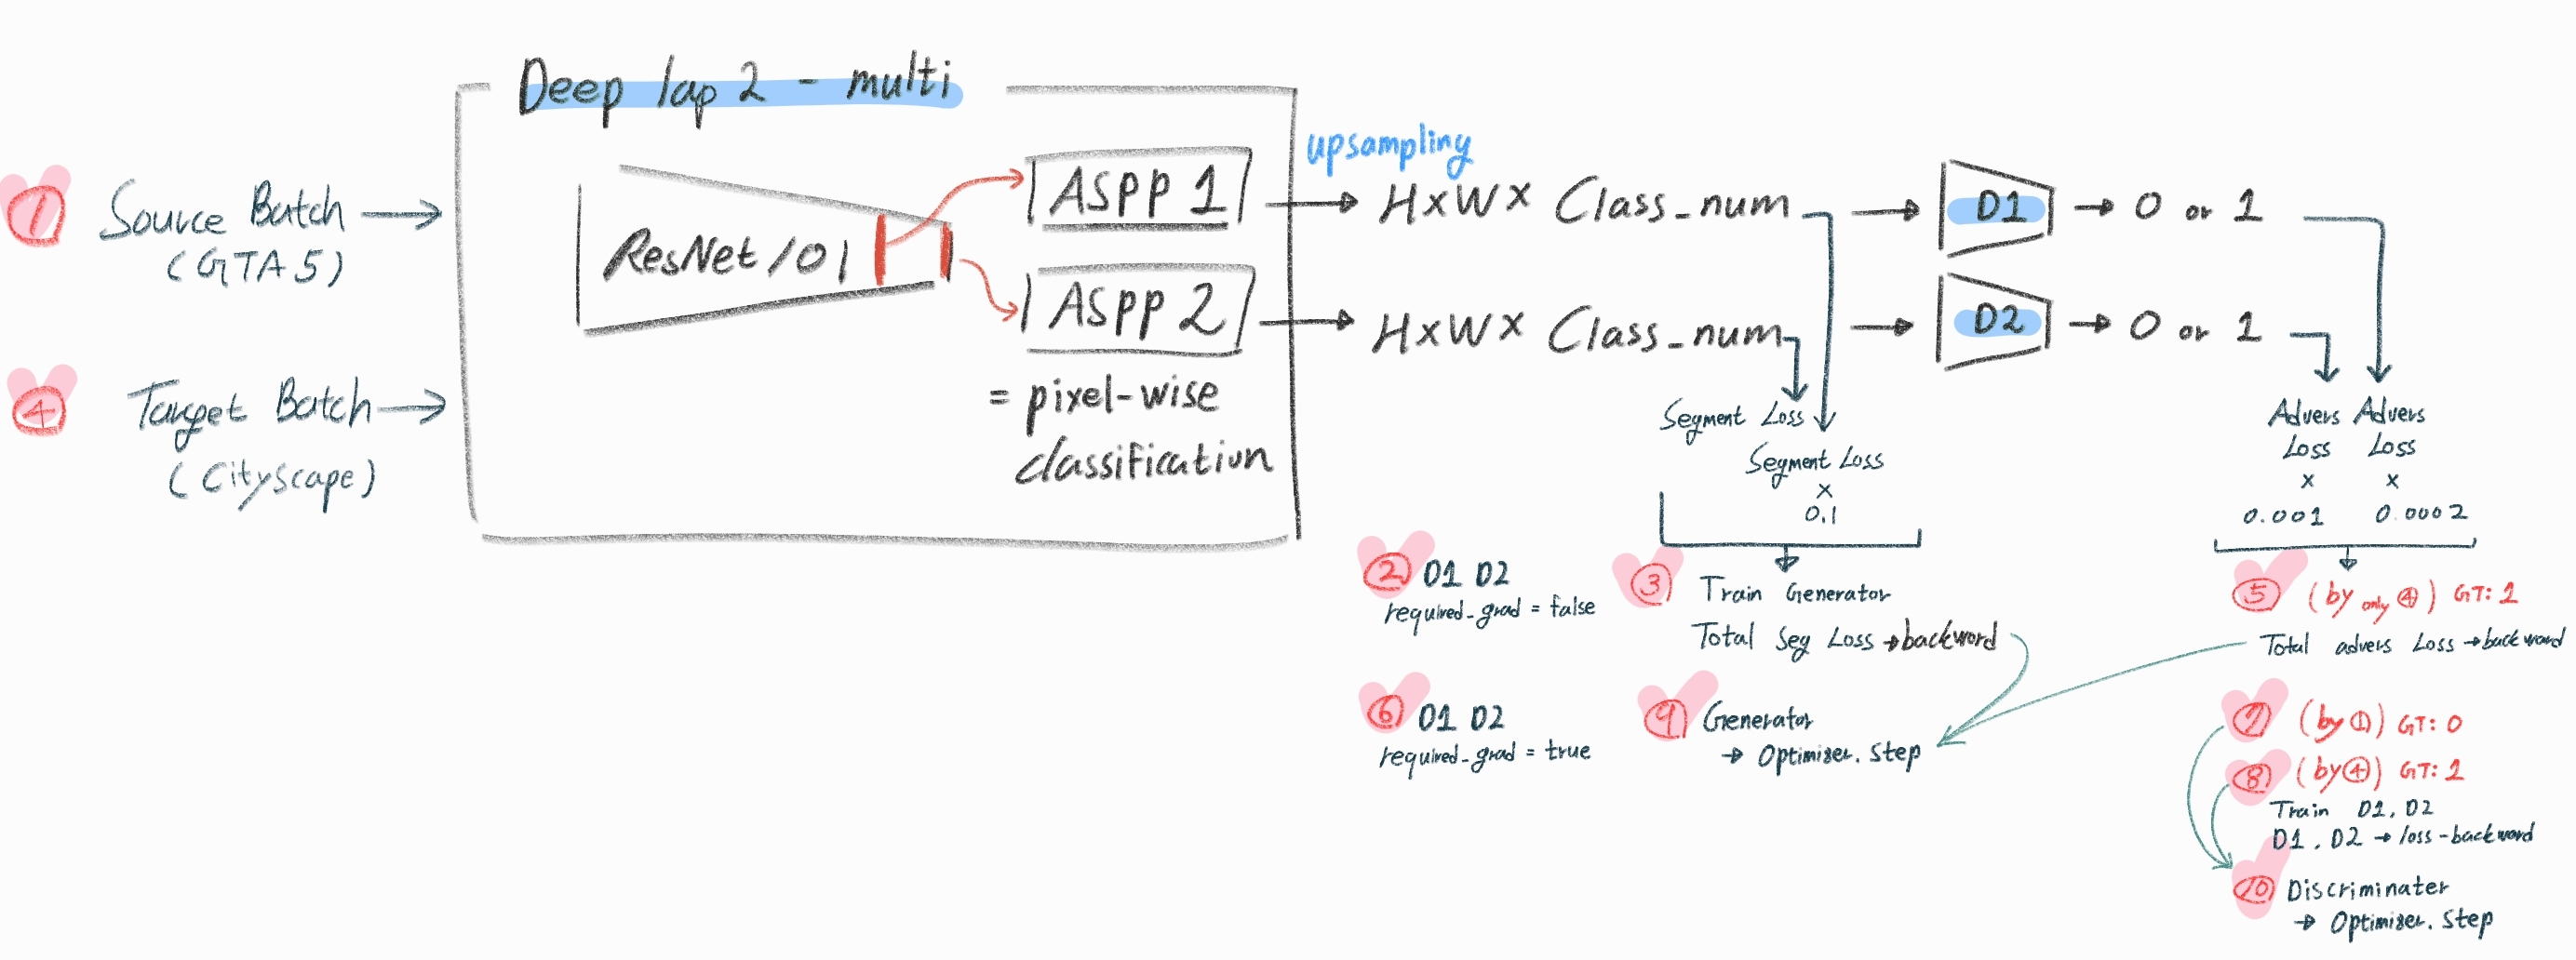 Deep lap 2 - multi
① Source Batch
(GTA5)
④ Target Batch
(Cityscape)
ResNet 101
ASPP 1
ASPP 2
= pixel-wise
classification
upsampling
H×W× Class_num
H×W× Class_num
D1
0 or 1
D2
0 or 1
Segment Loss
Segment Loss
×
0.1
Advers Loss
×
0.001
Advers Loss
×
0.0002
② D1 D2
required_grad = false
③ Train Generator
Total Seg Loss → backword
⑤ (by only ④) GT: 1
Total advers Loss → backward
⑥ D1 D2
required_grad = true
⑨ Generator
→ Optimiser. Step
⑦ (by ①) GT: 0
⑧ (by ④) GT: 1
Train D1, D2
D1, D2 → loss-backword
⑩ Discriminater
→ Optimiser. Step